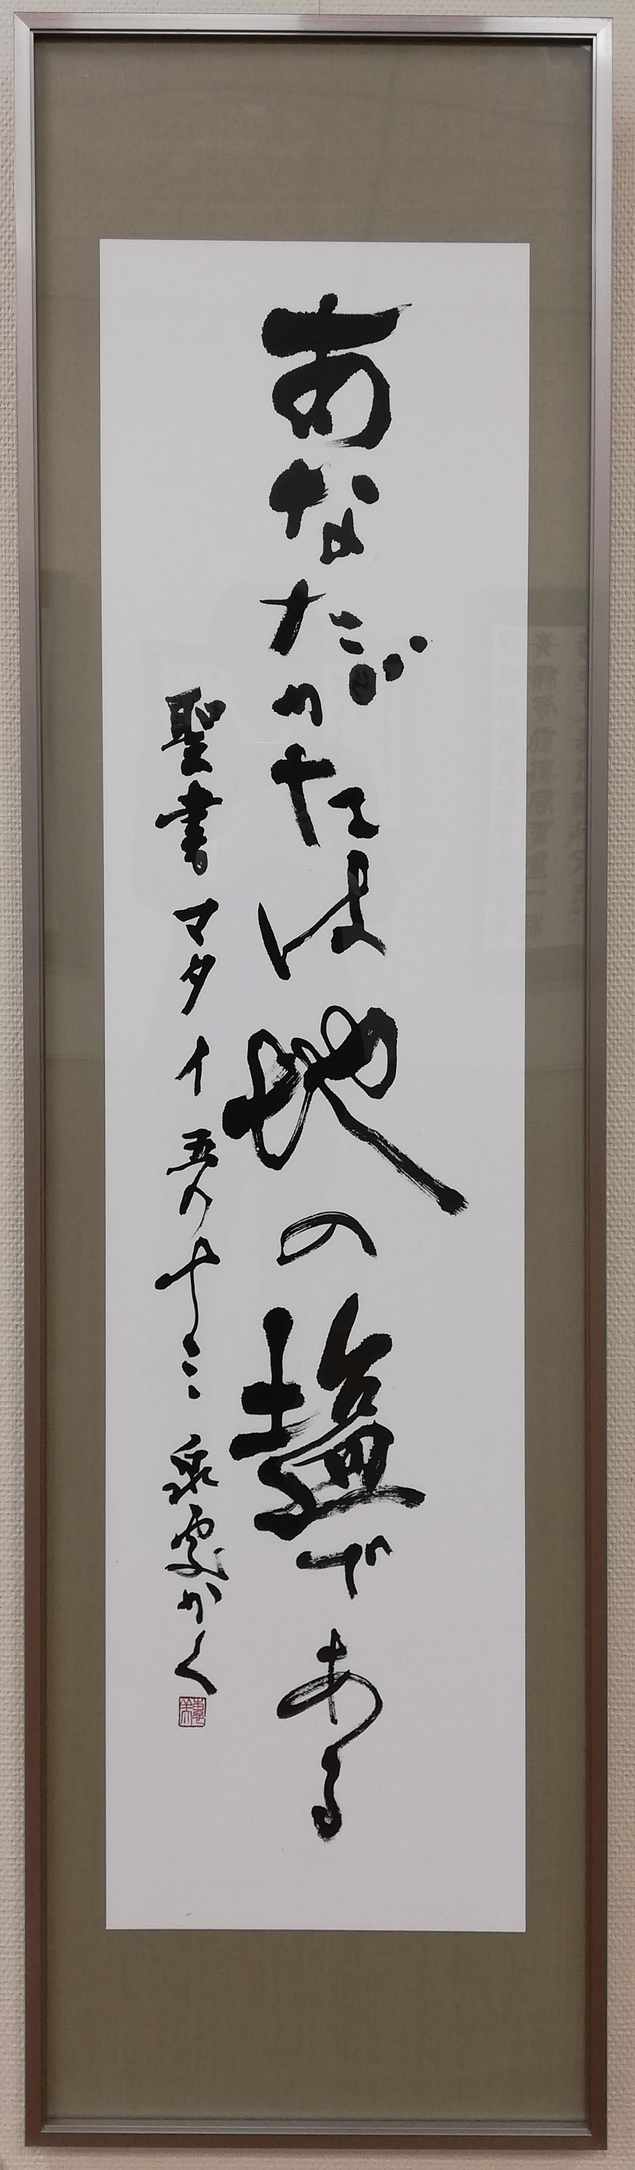 あなたがたは地の塩である
聖書マタイ五ノ十三 泉雲かく